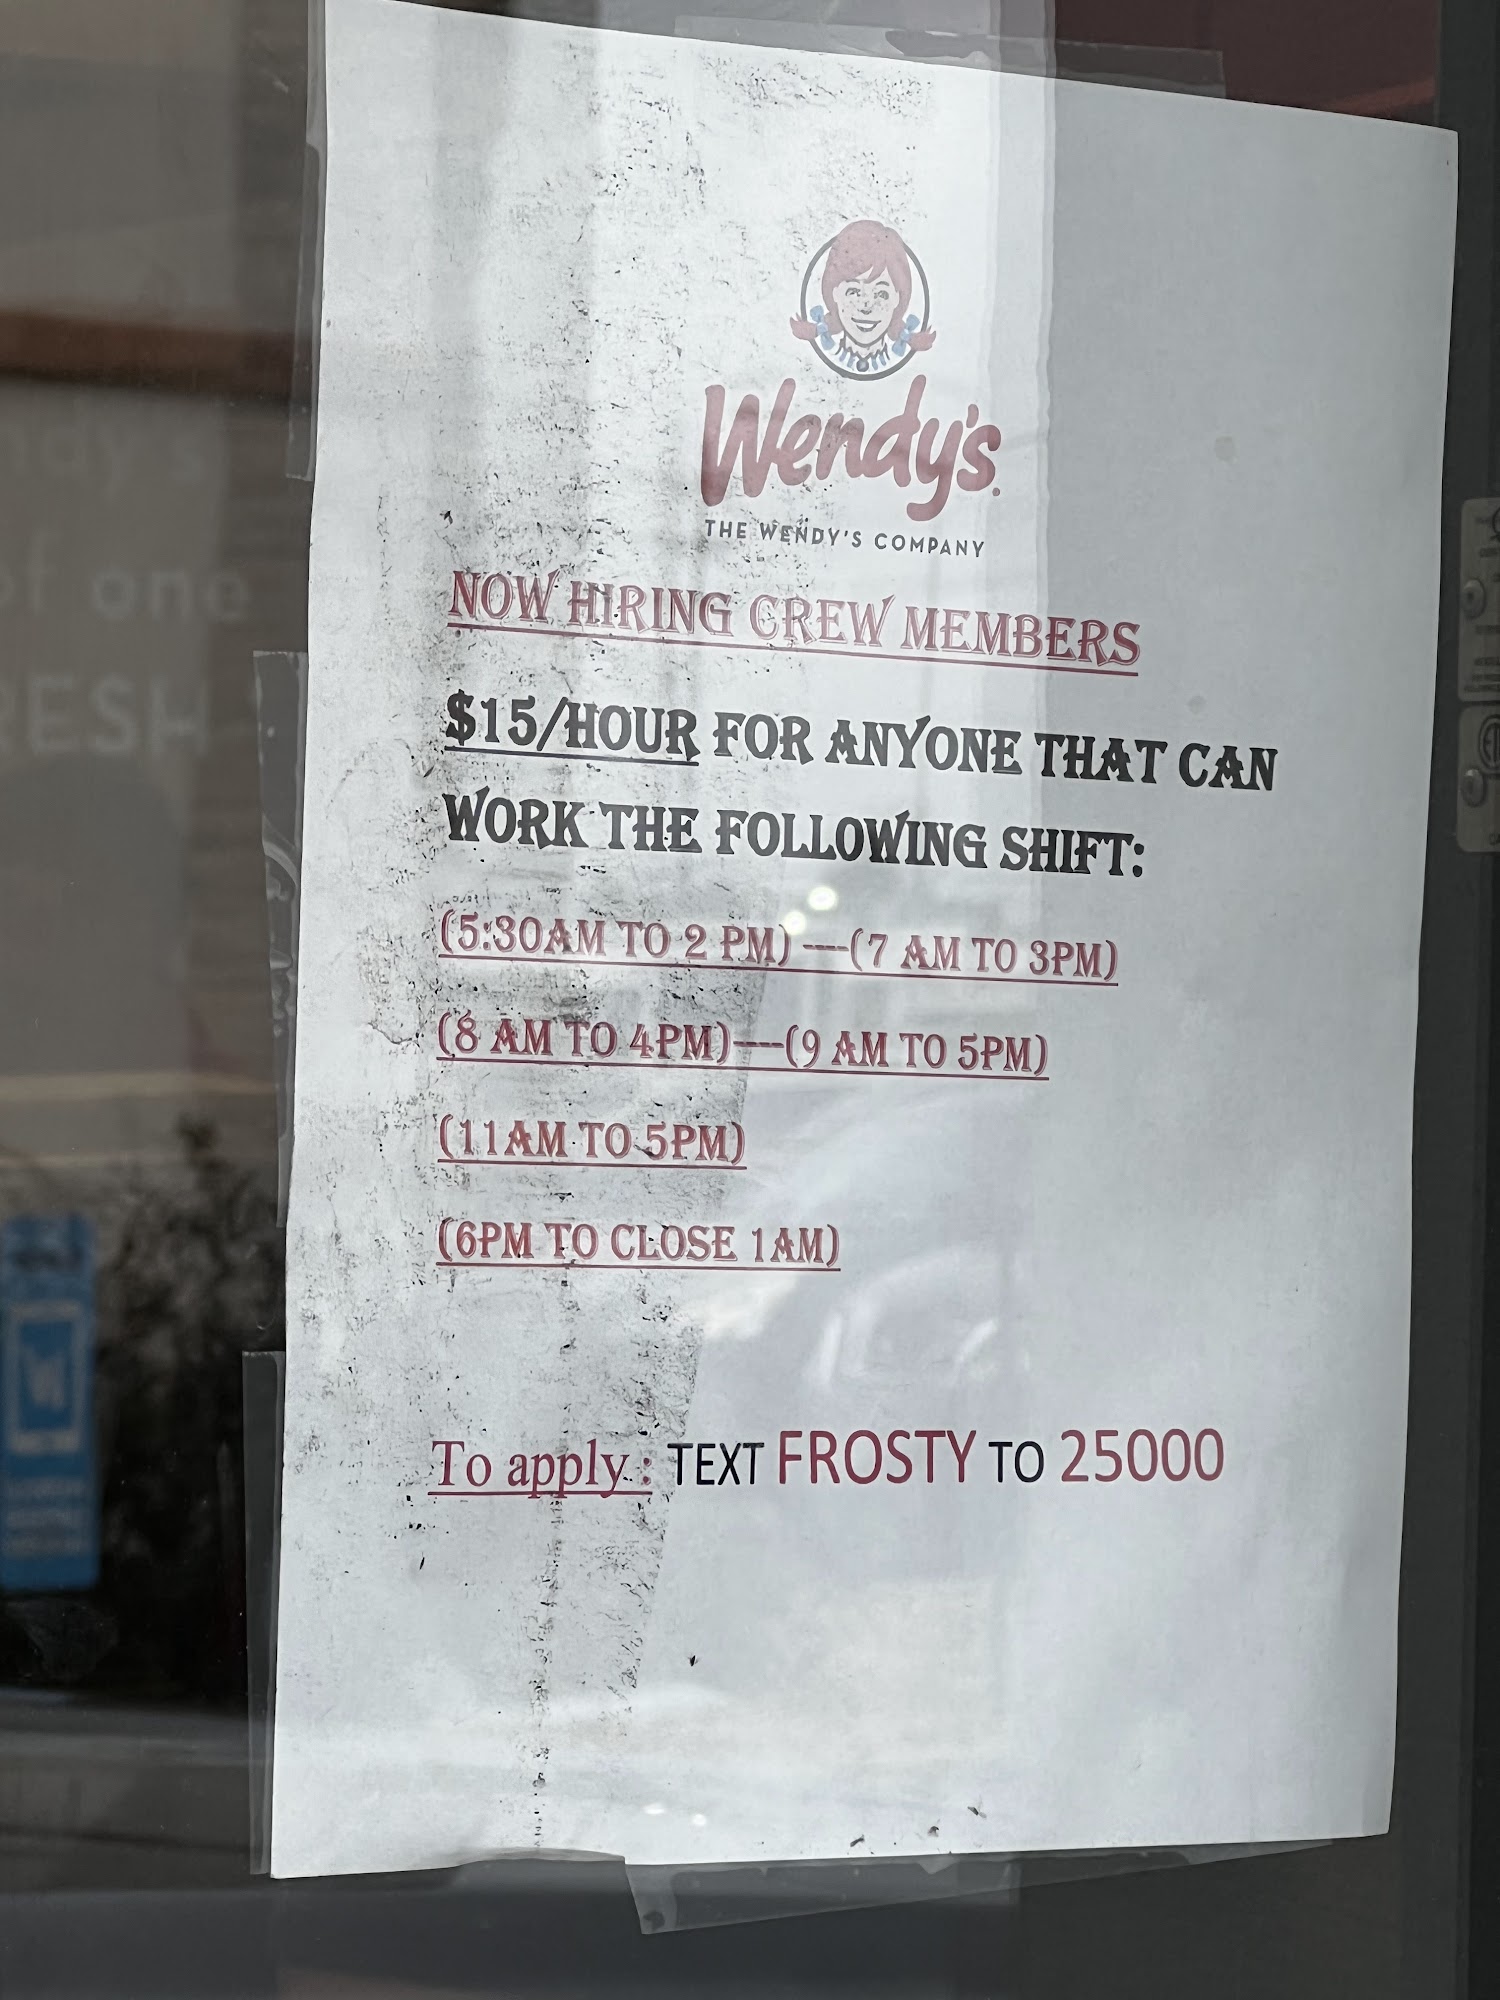 Wendy's
THE WENDY'S COMPANY
NOW HIRING CREW MEMBERS
$15/HOUR FOR ANYONE THAT CAN
WORK THE FOLLOWING SHIFT:
(5:30AM TO 2 PM) ----(7 AM TO 3PM)
(8 AM TO 4PM)----(9 AM TO 5PM)
(11AM TO 5PM)
(6PM TO CLOSE 1AM)
To apply : TEXT FROSTY TO 25000
one